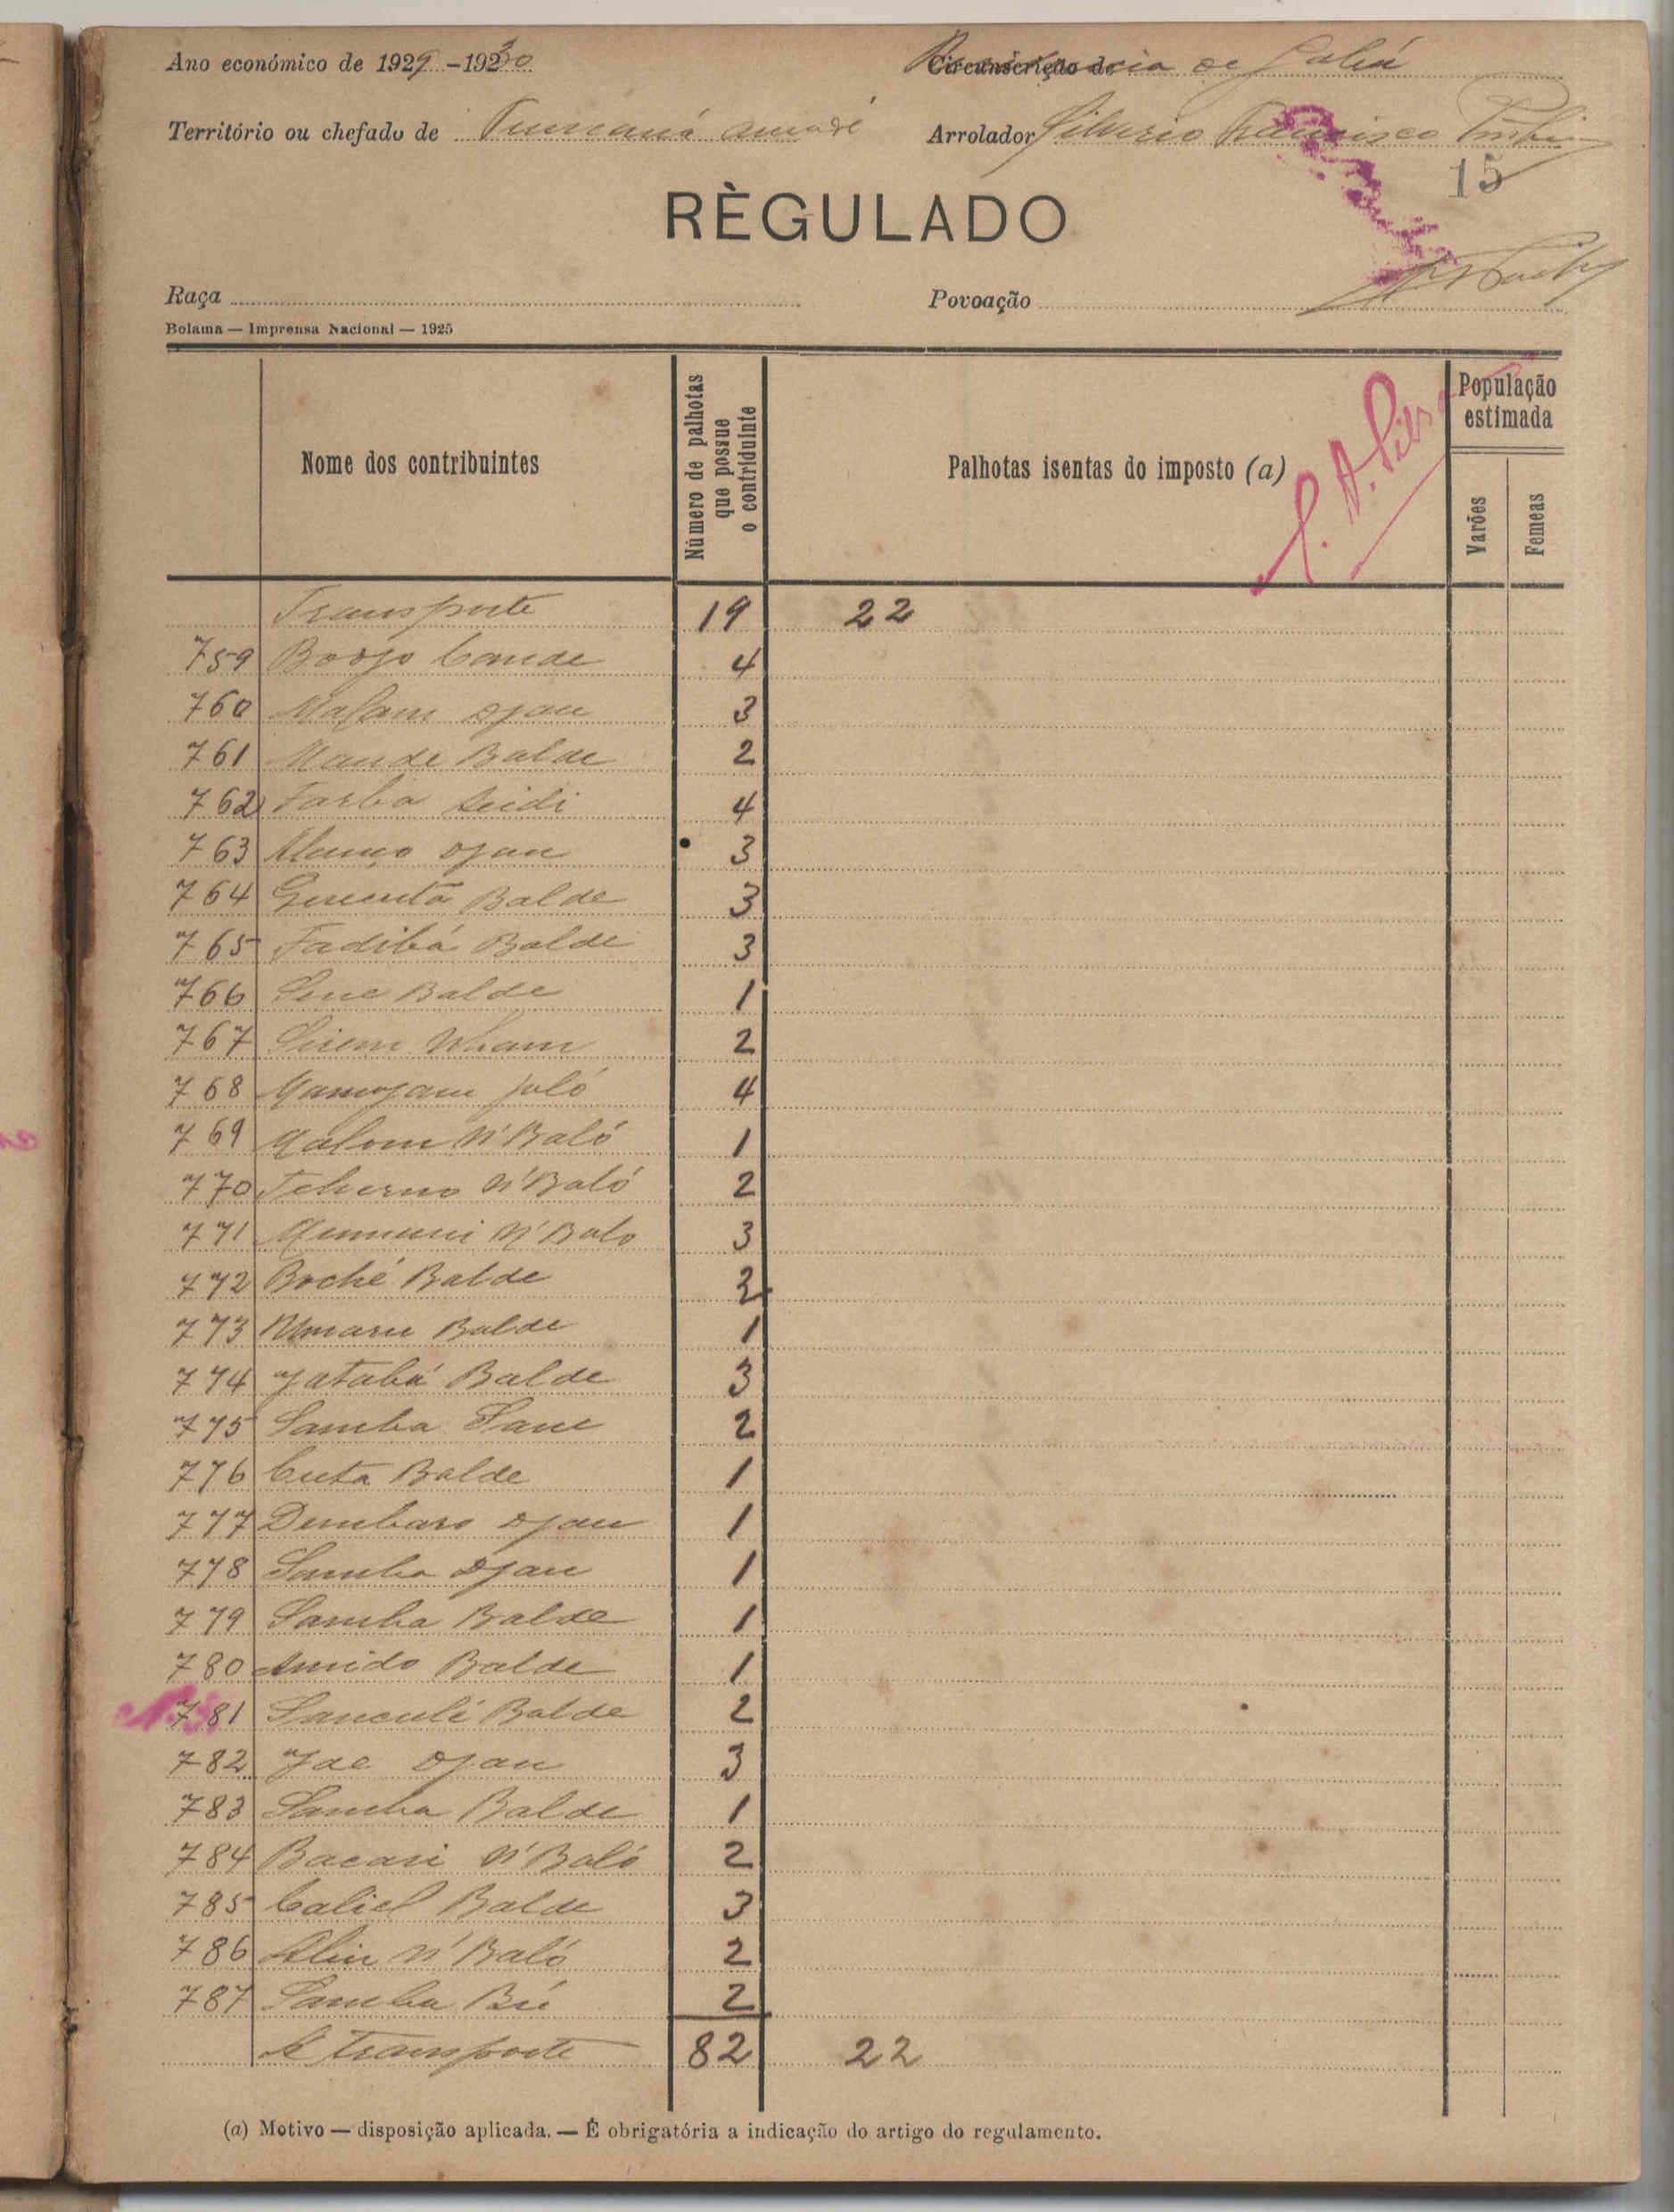 Ano económico de 1929-1930 Circunscrição de Residencia de Gabú
Território ou chefado de Tumaná Arrolador Silverio Francisco
15
RÈGULADO
Raça Povoação
Bolama — Imprensa Nacional — 1925
Nome dos contribuintes
Número de palhotas que possue o contriduinte
Palhotas isentas do imposto (a)
População estimada
Varões
Femeas
Transporte 19 22
759 Bodjo Cande 4
760 Malam Djau 3
761 Mande Balde 2
762 Farba Seidi 4
763 Djau 3
764 Balde 3
765 Fadibá Balde 3
766 Sene Balde 1
767 2
768 Jaló 4
769 N'Baló 1
770 Tcherno N'Baló 2
771 N'Balo 3
772 Boché Balde 2
773 Umaru Balde 1
774 Balde 3
775 Samba Sane 2
776 Cuta Balde 1
777 Dembaro Djau 1
778 Samba Djau 1
779 Samba Balde 1
780 Amido Balde 1
781 Sanculé Balde 2
782 Jae Djau 3
783 Samba Balde 1
784 Bacari N'Baló 2
785 Caliel Balde 3
786 Aliu N'Baló 2
787 Samba Bú 2
A transporte 82 22
(a) Motivo — disposição aplicada. — É obrigatória a indicação do artigo do regulamento.